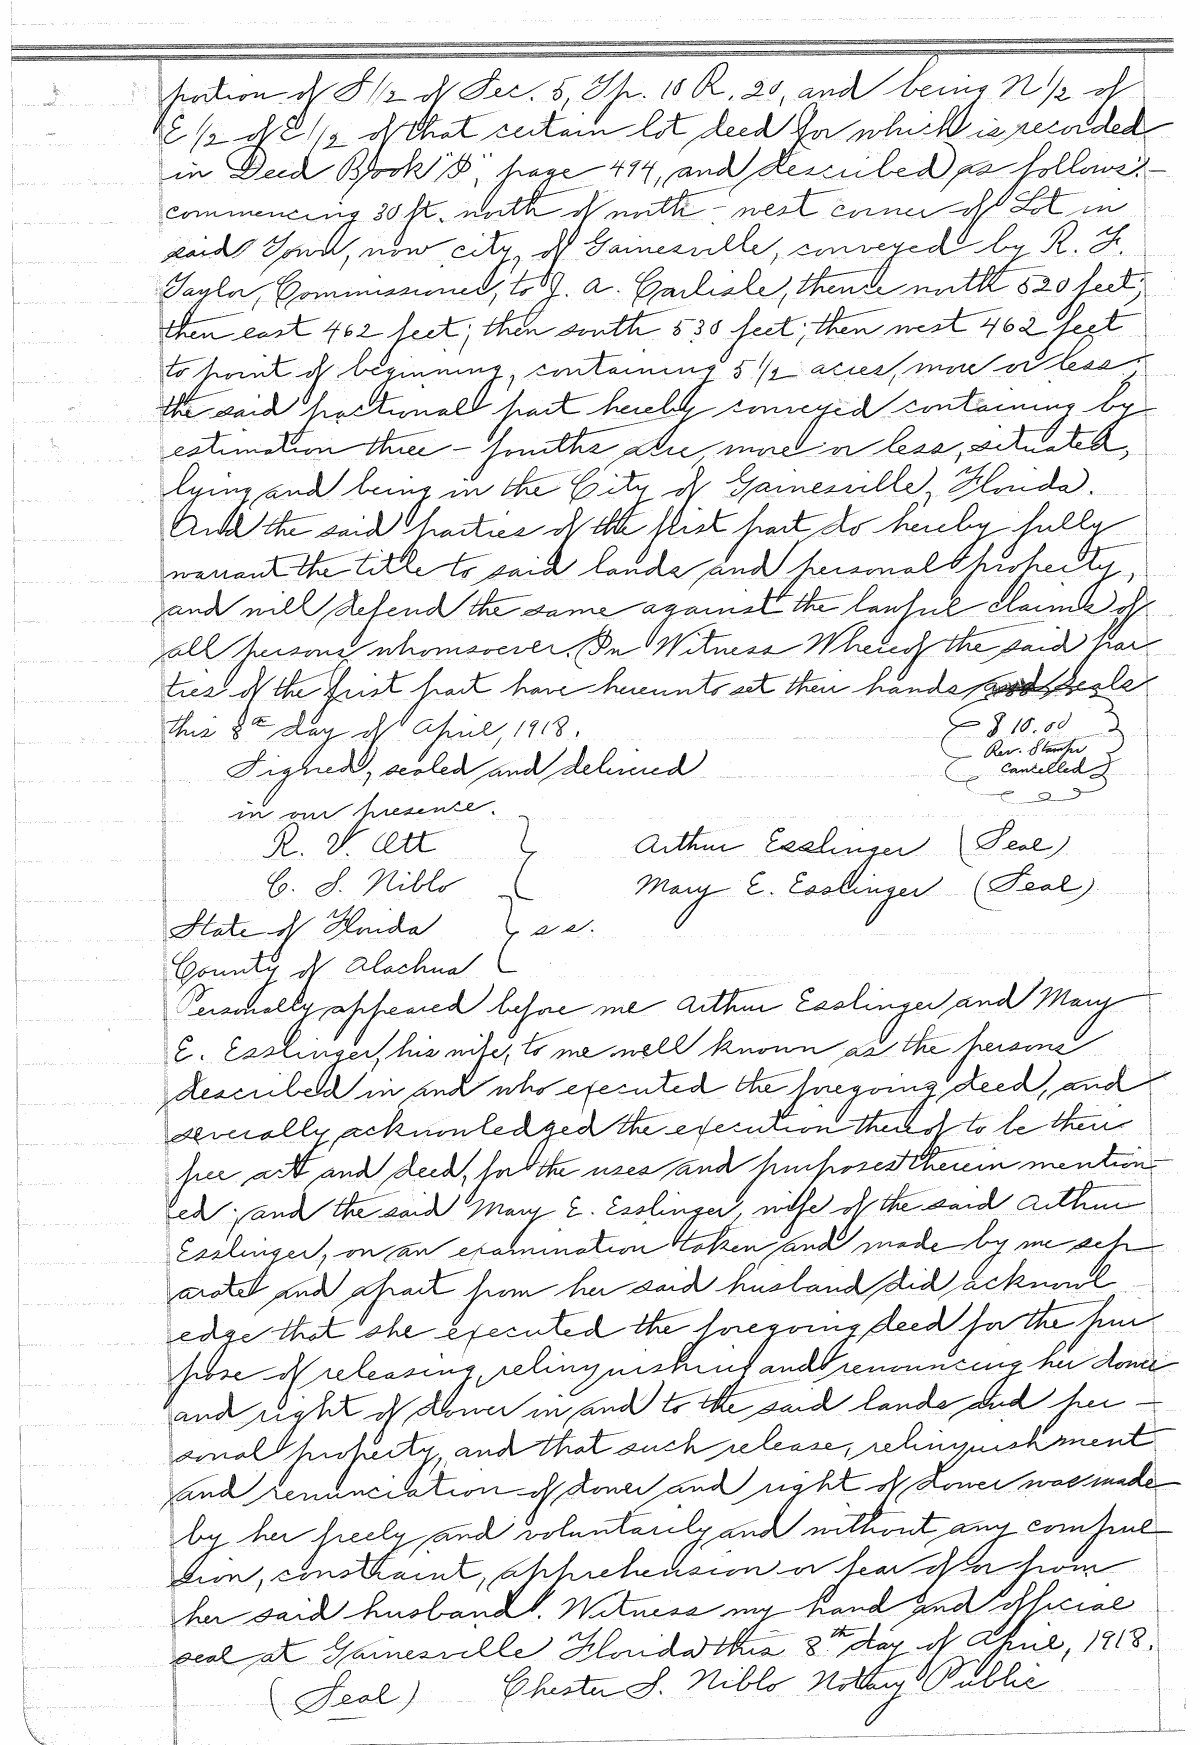 portion of S 1/2 of Sec. 5, Tp. 10 R. 20, and being N 1/2 of
E 1/2 of E 1/2 of that certain lot deed for which is recorded
in Deed Book "S", page 494, and described as follows:-
commencing 30 ft. north of north-west corner of Lot in
said Town, now city, of Gainesville, conveyed by R. F.
Taylor, Commissioner, to J. A. Carlisle, thence north 520 feet;
then east 462 feet; then south 530 feet; then west 462 feet
to point of beginning, containing 5 1/2 acres, more or less;
the said fractional part hereby conveyed containing by
estimation three-fourths acre, more or less, situated,
lying and being in the City of Gainesville, Florida.
And the said parties of the first part do hereby fully
warrant the title to said lands and personal property,
and will defend the same against the lawful claims of
all persons whomsoever. In Witness Whereof the said par
ties of the first part have hereunto set their hands and seals
this 8th day of April, 1918.
$10.00
Rev. Stamps
Cancelled
Signed, sealed and delivered
in our presence.
R. V. Ott Arthur Esslinger (Seal)
C. S. Niblo Mary E. Esslinger (Seal)
State of Florida } s.s.
County of Alachua
Personally appeared before me Arthur Esslinger and Mary
E. Esslinger, his wife, to me well known as the persons
described in and who executed the foregoing deed, and
severally acknowledged the execution thereof to be their
free act and deed, for the uses and purposes therein mention
ed; and the said Mary E. Esslinger, wife of the said Arthur
Esslinger, on an examination taken and made by me sep
arate and apart from her said husband did acknowl
edge that she executed the foregoing deed for the pur
pose of releasing, relinquishing and renouncing her dower
and right of dower in and to the said lands and per-
sonal property, and that such release, relinquishment
and renunciation of dower and right of dower was made
by her freely and voluntarily and without any compul
sion, constraint, apprehension or fear of or from
her said husband. Witness my hand and official
seal at Gainesville Florida this 8th day of April, 1918.
(Seal) Chester S. Niblo Notary Public